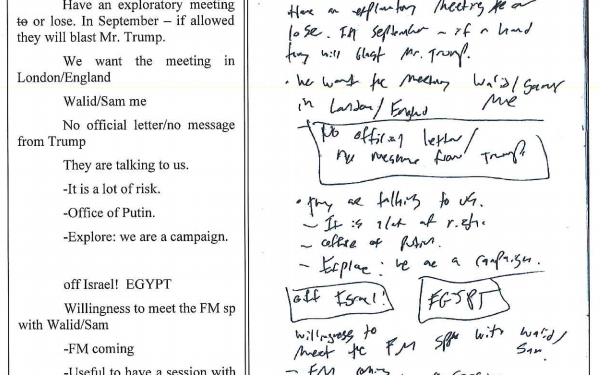 Have an exploratory meeting
to or lose. In September – if allowed
they will blast Mr. Trump.
We want the meeting in
London/England
Walid/Sam me
No official letter/no message
from Trump
They are talking to us.
-It is a lot of risk.
-Office of Putin.
-Explore: we are a campaign.
off Israel! EGYPT
Willingness to meet the FM sp
with Walid/Sam
-FM coming
-Useful to have a session with
Have an exploratory meeting to or
lose. In September – if allowed
they will blast Mr. Trump.
• We want the meeting Walid/Sam
in London/England me
No official letter/
no message from Trump
• They are talking to us.
- It is a lot of risk.
- Office of Putin.
- Explore: we are a campaign.
off Israel! EGYPT
willingness to
meet the FM sp with Walid/
Sam
- FM coming